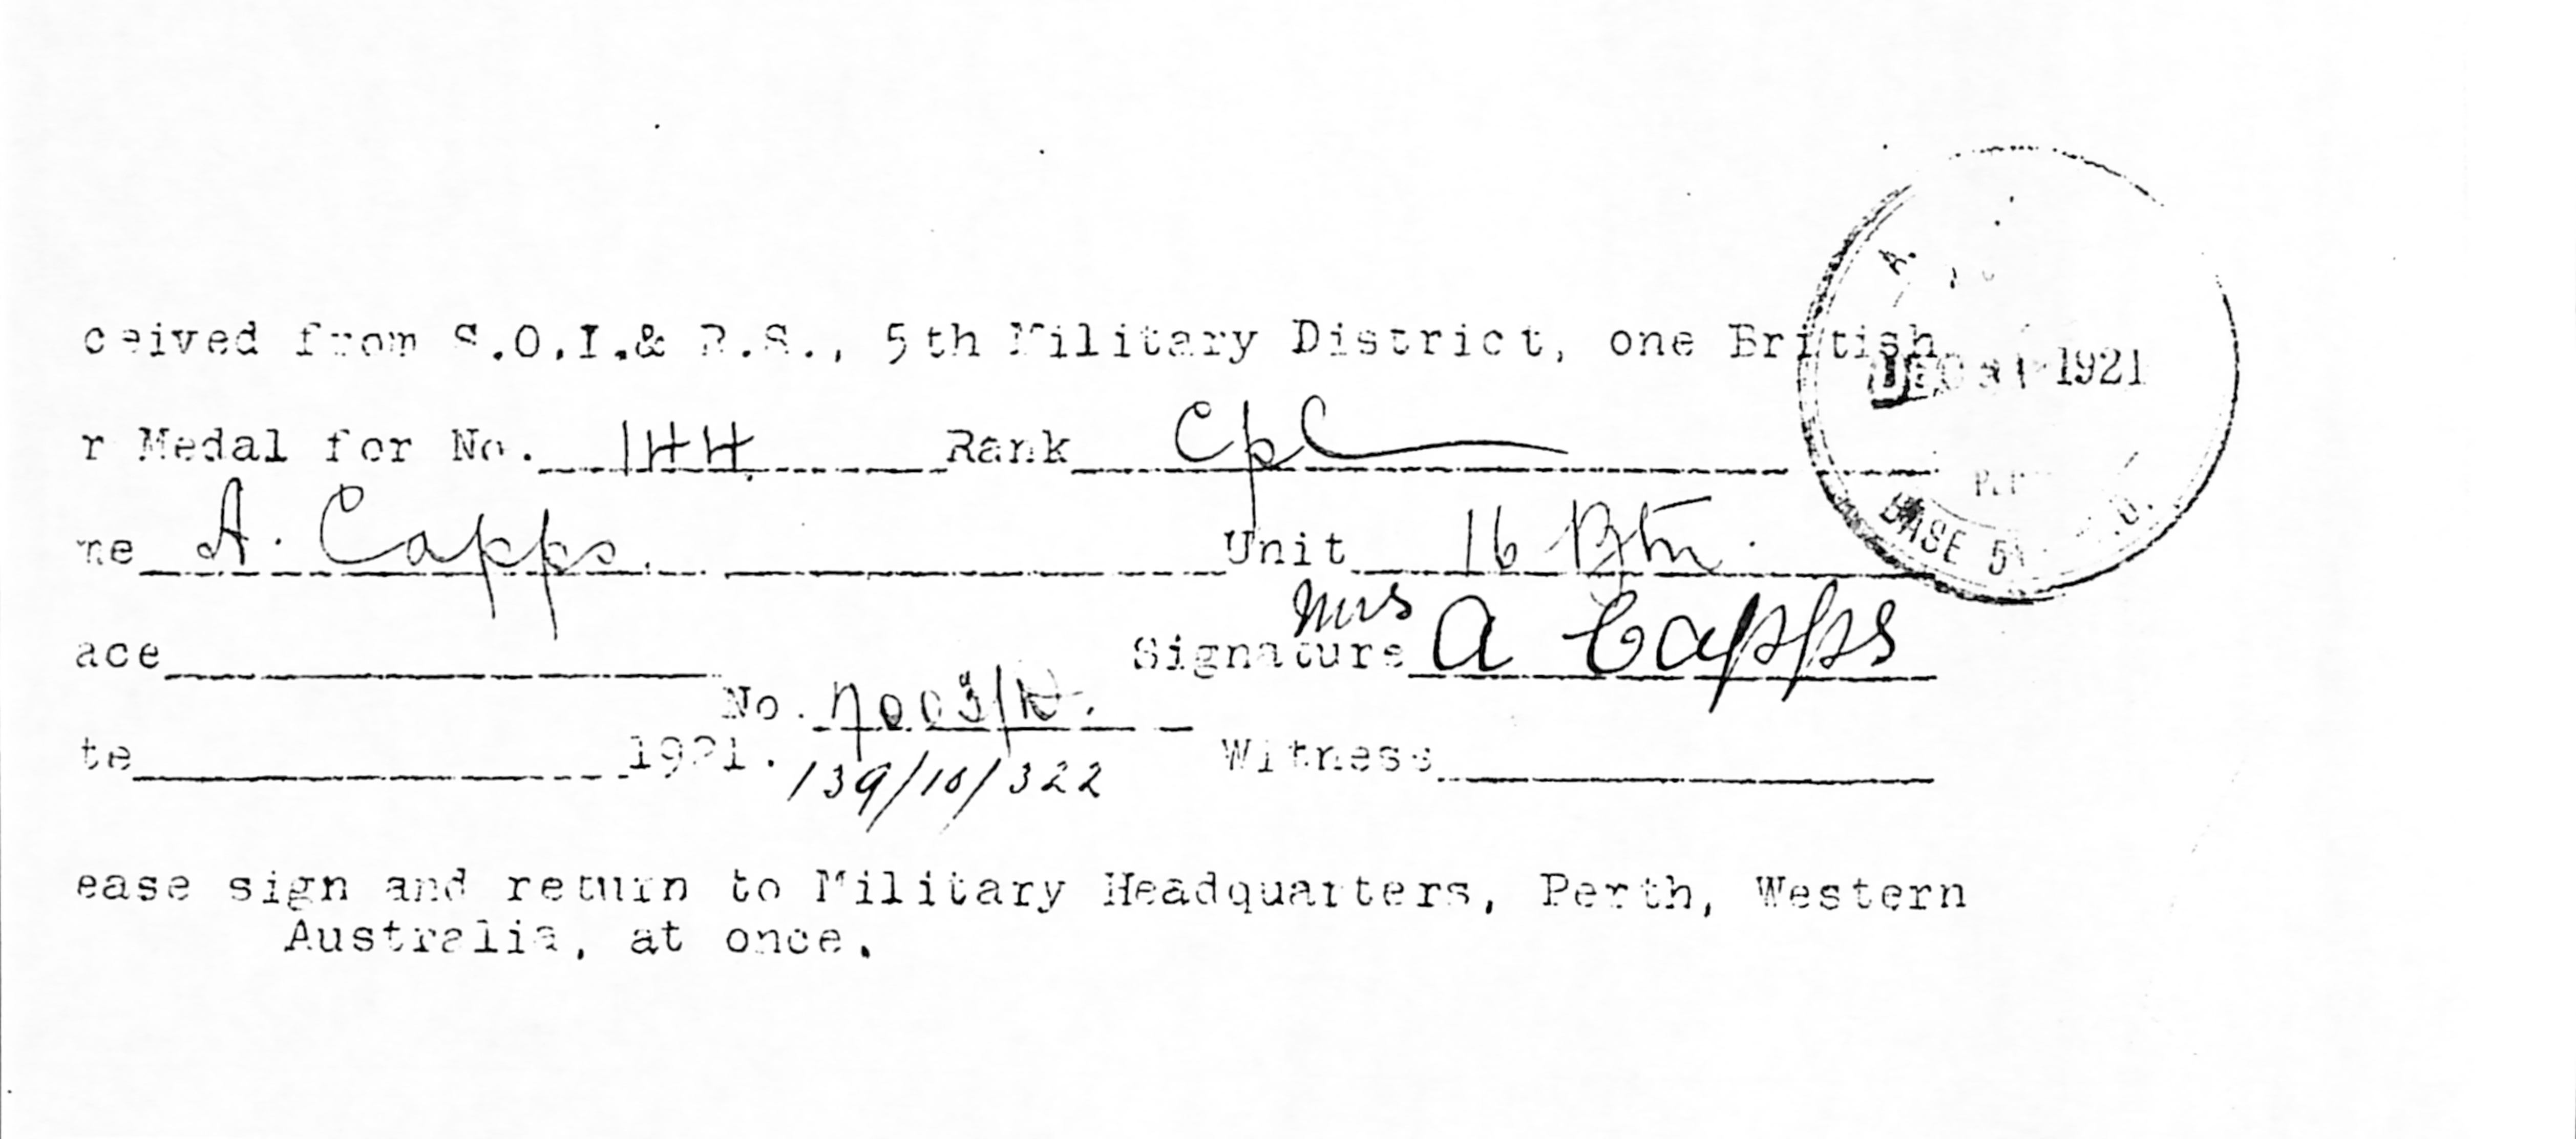 ceived from S.O.I.& R.S., 5th Military District, one British
r Medal for No. 144 Rank Cpl
me A. Capps. Unit 16 Btn.
ace Signature Mrs A Capps
No.
te 1921. 139/10/322 Witness
ease sign and return to Military Headquarters, Perth, Western
Australia, at once.
DEC 1921
BASE 5